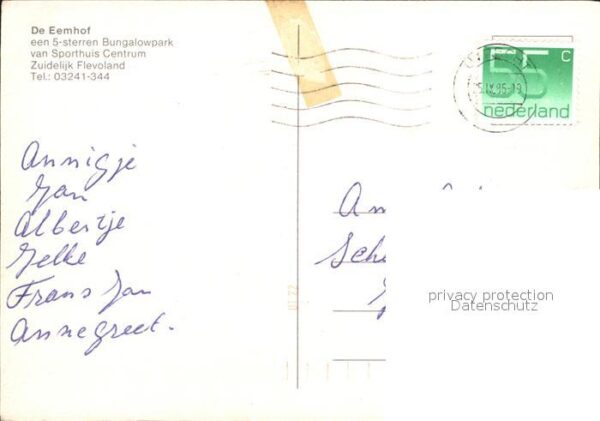 De Eemhof
een 5-sterren Bungalowpark
van Sporthuis Centrum
Zuidelijk Flevoland
Tel.: 03241-344
55 c
nederland
Annigje
Jan
Albertje
Jelke
Frans Jan
Annegreet.
An
Sche
privacy protection
Datenschutz